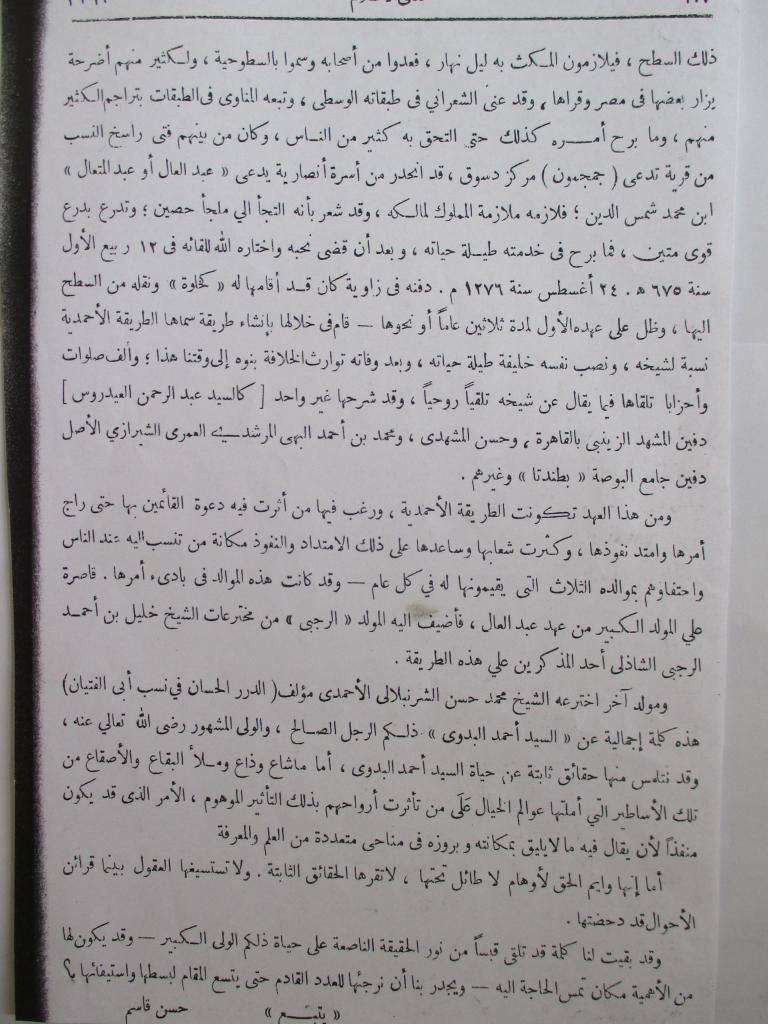 ذلك السطح ، فيلازمون المكث به ليل نهار ، فعدوا من أصحابه وسموا بالسطوحية ، ولكثير منهم أضرحة
يزار بعضها فى مصر وقراها ، وقد عنى الشعراني فى طبقاته الوسطى ، وتبعه المناوى فى الطبقات بتراجم الكثير
منهم ، وما برح أمره كذلك حتى التحق به كثير من الناس ، وكان من بينهم فتى راسخ النسب
من قرية تدعى ( جمجمون ) مركز دسوق ، قد انحدر من أسرة أنصارية يدعى « عبد العال أو عبد المتعال »
ابن محمد شمس الدين ؛ فلازمه ملازمة المملوك لمالكه ، وقد شعر بأنه التجأ الي ملجأ حصين ؛ وتدرع بدرع
قوى متين ، فما برح فى خدمته طيلة حياته ، وبعد أن قضى نحبه واختاره الله للقائه فى ١٢ ربيع الأول
سنة ٦٧٥ ه . ٢٤ أغسطس سنة ١٢٧٦ م . دفنه فى زاوية كان قد أقامها له « كخلوة » ونقله من السطح
اليها ، وظل على عهده الأول لمدة ثلاثين عاماً أو نحوها — قام فى خلالها بإنشاء طريقة سماها الطريقة الأحمدية
نسبة لشيخه ، ونصب نفسه خليفة طيلة حياته ، وبعد وفاته توارث الخلافة بنوه إلى وقتنا هذا ؛ وألف صلوات
وأحزابا تلقاها فيما يقال عن شيخه تلقياً روحياً ، وقد شرحها غير واحد [ كالسيد عبد الرحمن العيدروس ]
دفين المشهد الزينبى بالقاهرة ، وحسن المشهدى ، ومحمد بن أحمد البهى المرشدي العمرى الشيرازي الأصل
دفين جامع البوصة « بطندتا » وغيرهم .
ومن هذا العهد تكونت الطريقة الأحمدية ، ورغب فيها من أثرت فيه دعوة القائمين بها حتى راج
أمرها وامتد نفوذها ، وكثرت شعابها وساعدها على ذلك الامتداد والنفوذ مكانة من تنسب اليه عند الناس
واحتفاؤهم بموالده الثلاث التى يقيمونها له في كل عام — وقد كانت هذه الموالد فى بادىء أمرها . قاصرة
علي المولد الكبير من عهد عبد العال ، فأضيف اليه المولد « الرجبى » من مخترعات الشيخ خليل بن أحمد
الرجبى الشاذلى أحد المذكرين علي هذه الطريقة .
ومولد آخر اخترعه الشيخ محمد حسن الشرنبلالى الأحمدى مؤلف ( الدرر الحسان في نسب أبى الفتيان)
هذه كلمة إجمالية عن « السيد أحمد البدوى » ذلكم الرجل الصالح ، والولى المشهور رضى الله تعالي عنه ،
وقد نتلمس منها حقائق ثابتة عن حياة السيد أحمد البدوى ، أما ماشاع وذاع وملأ البقاع والأصقاع من
تلك الأساطير التي أملتها عوالم الخيال عَلَى من تأثرت أرواحهم بذلك التأثير الموهوم ، الأمر الذى قد يكون
منفذاً لأن يقال فيه ما لايليق بمكانته وبروزه فى مناحى متعددة من العلم والمعرفة
أما إنها وايم الحق لأوهام لا طائل تحتها ، لاتقرها الحقائق الثابتة . ولا تستسيغها العقول بينما قرائن
الأحوال قد دحضتها .
وقد بقيت لنا كلمة قد تلقى قبساً من نور الحقيقة الناصعة على حياة ذلكم الولى الكبير — وقد يكون لها
من الأهمية مكان تمس الحاجة اليه — ويجدر بنا أن نرجئها للعدد القادم حتى يتسع المقام لبسطها واستيفائها ؟
« يتبع » حسن قاسم